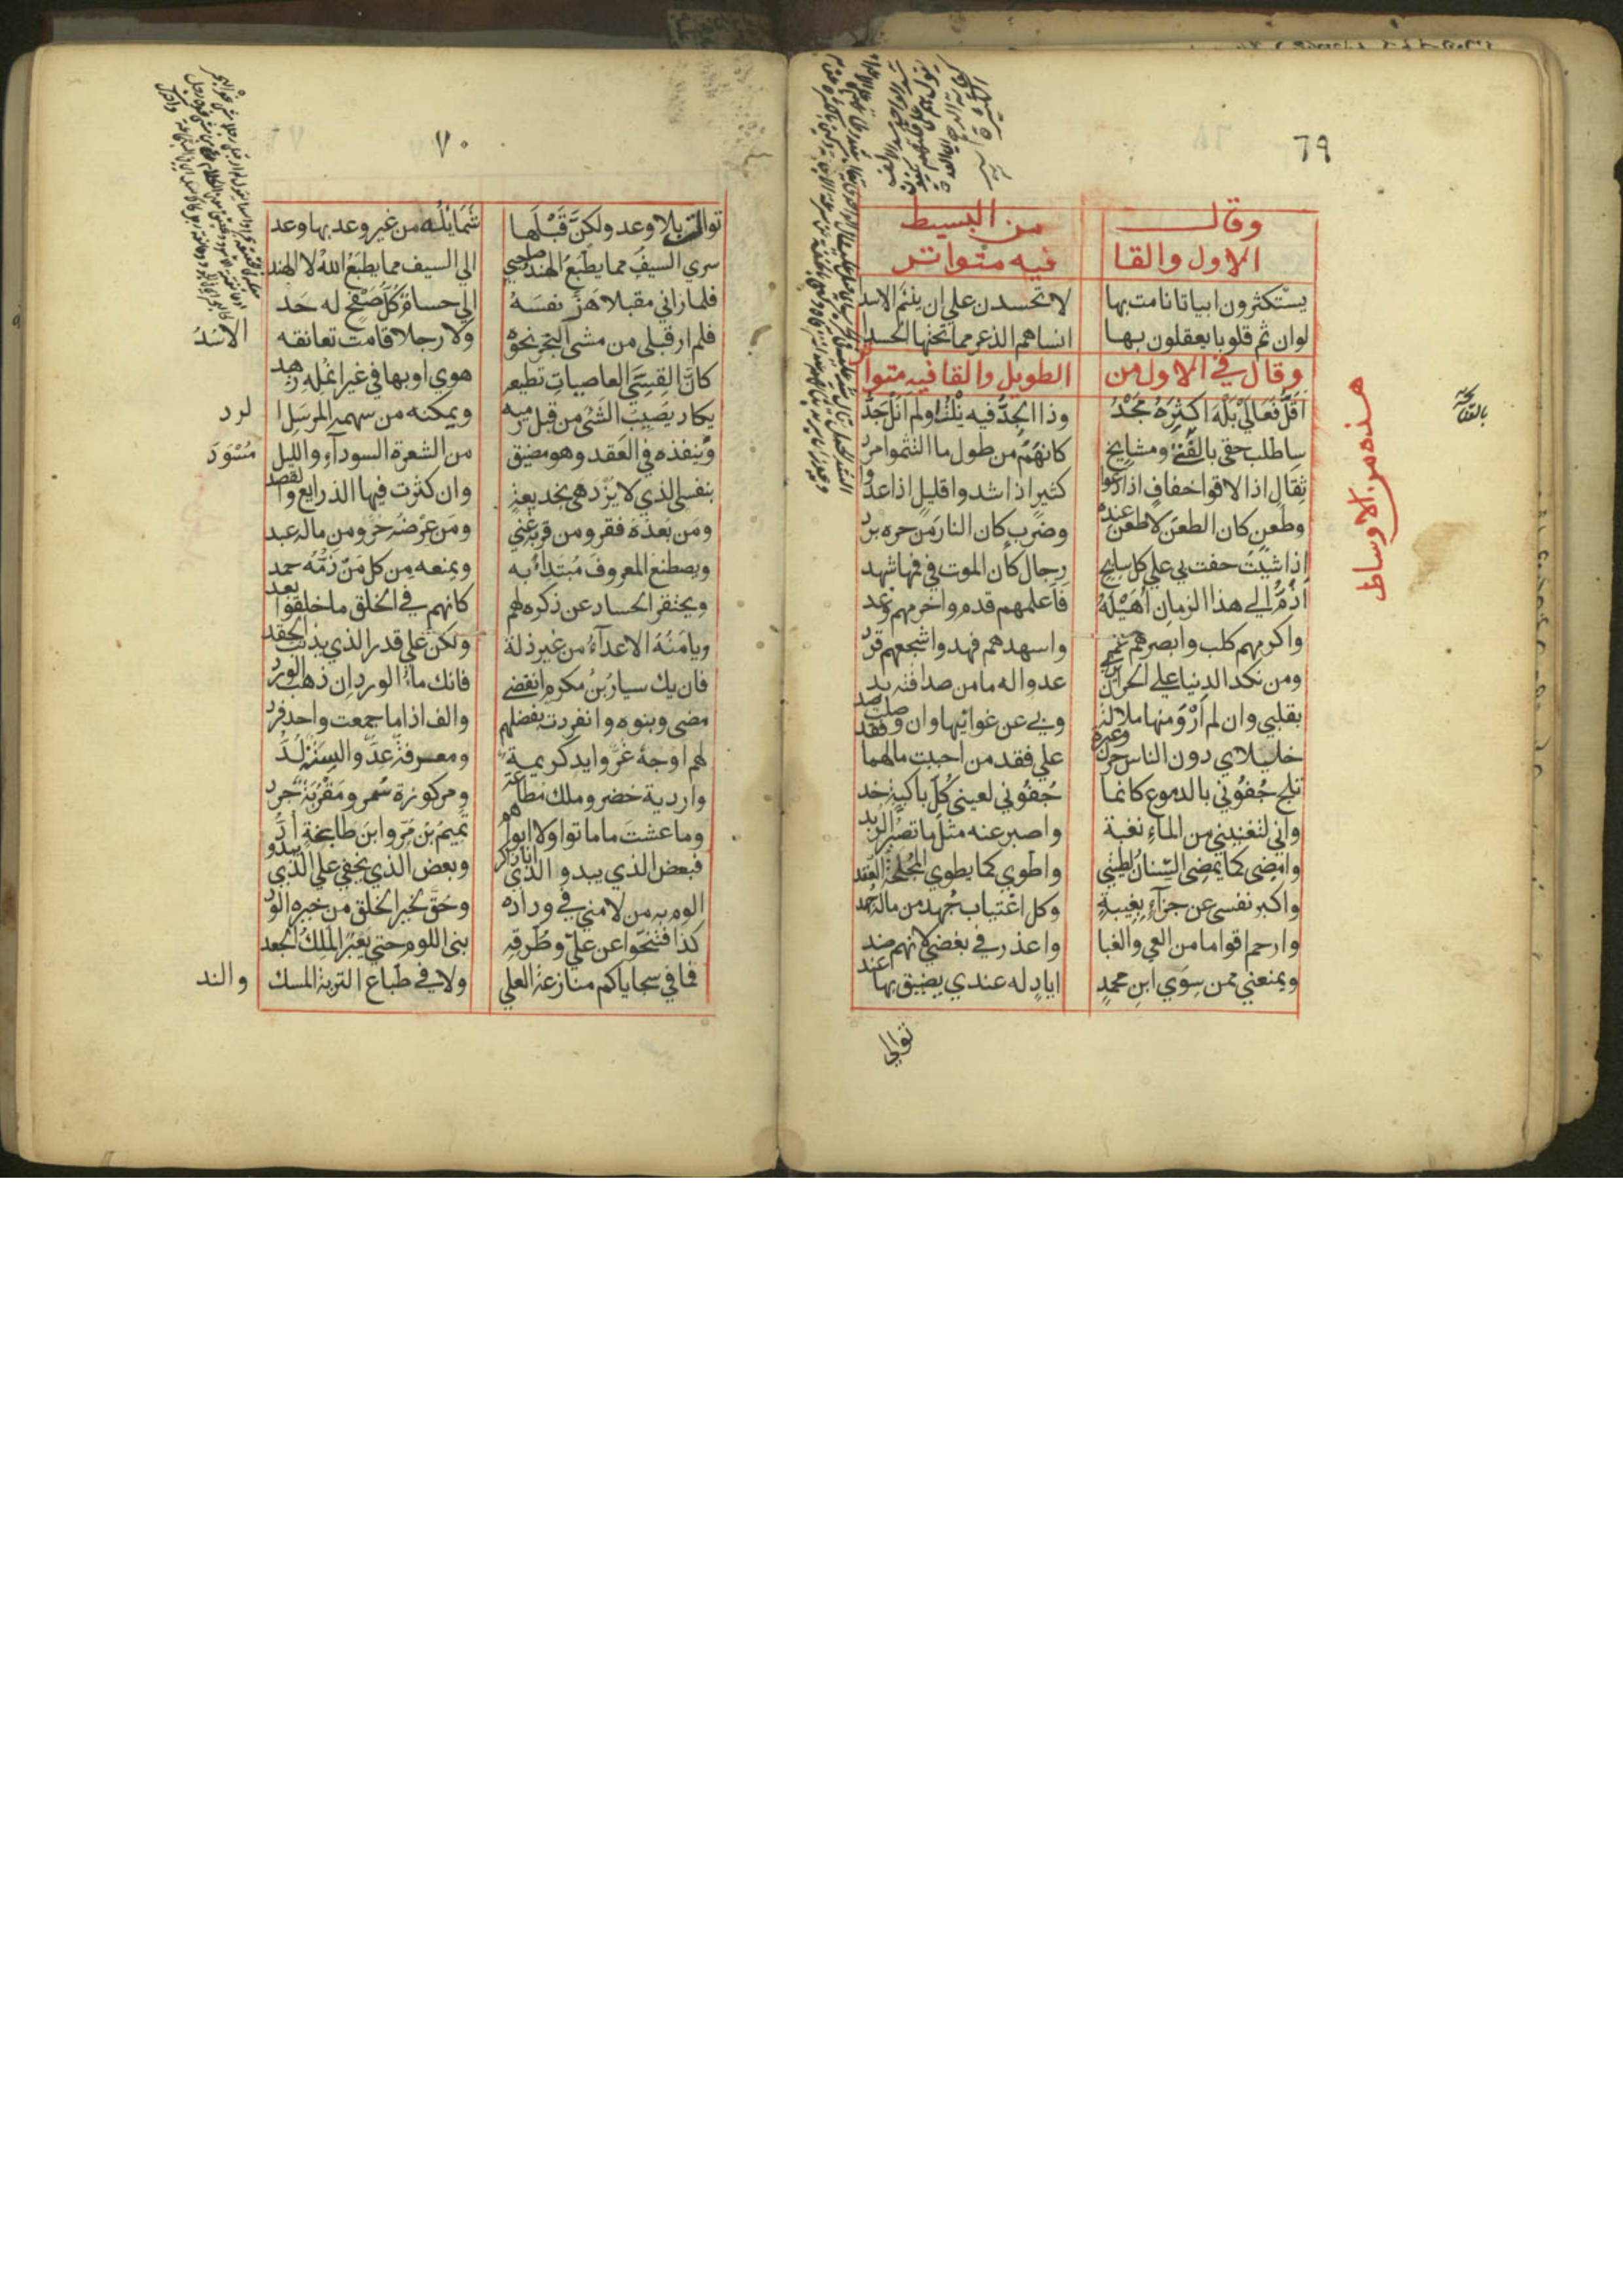 ٦٩
وقال من البسيط
الاول والقا فيه متواتر
يستكثرون ابياتا نامت بها لا تحسدن علي ان ينئم الاسدا
لوان ثم قلوبا يعقلون بها انساهم الذعر مما تحتها الحسدا
وقال في الاول من الطويل والقافيه متواتر
اقل فعالي بله اكثره مجد وذا الجد فيه نلت او لم انل جد
ساطلب حقي بالقنا ومشايخ كانهم من طول ما التثموا مرد
ثقال اذا لاقوا خفاف اذا دعوا كثير اذا شدوا قليل اذا عدوا
وطعن كان الطعن لا طعن عنده وضرب كان النار من حره برد
اذا شيت حفت بي علي كل سابح رجال كأن الموت في فمها شهد
اذم الي هذا الزمان اهيله فاعلمهم فدم واحزمهم وغد
واكرمهم كلب وابصرهم عم واسهدهم فهد واشجعهم قرد
ومن نكد الدنيا علي الحر ان يري عدوا له ما من صداقته بد
بقلبي وان لم ارو منها ملالة وبي عن غوانيها وان وصلت صد
خليلاي دون الناس حزن وعبرة علي فقد من احببت مالهما فقد
تلج جفوني بالدموع كانما جفوني لعيني كل باكية خد
واني لتغنيني من الماء نغبة واصبر عنه مثل ما تصبر الربد
وامضي كما يمضي السنان لطيتي واطوي كما يطوي المجلحة العقد
واكبر نفسي عن جزآء بغيبة وكل اغتياب جهد من ماله جهد
وارحم اقواما من العي والغبا واعذر في بغضي لانهم ضد
ويمنعني ممن سوي ابن محمد اياد له عندي يضيق بها عند
توالي
هذه من الاوساط
٧٠
توالت بلا وعد ولكن قبلها شمايله من غير وعد بها وعد
سري السيف مما يطبع الهند صاحبي الي السيف مما يطبع الله لا الهند
فلما راني مقبلا هز نفسه الي حسام كل صفح له حد
فلم ار قبلي من مشي البحر نحوه ولا رجلا قامت تعانقه الاسد
كان القسي العاصيات تطيعه هوي او بها في غير انمله زهد
يكاد يصيب الشئ من قبل رميه ويمكنه من سهمه المرسل الرد
وينفذه في العقد وهو مضيق من الشعرة السودآء والليل مسود
بنفسي الذي لا يزدهي بخديعة وان كثرت فيها الذرايع والقصد
ومن بعده فقر ومن قربه غني ومن عرضه حر ومن ماله عبد
ويصطنع المعروف مبتدأ به ويمنعه من كل من ذمه حمد
ويحتقر الحساد عن ذكره لهم كانهم في الخلق ما خلقوا بعد
ويامنه الاعدآء من غير ذلة ولكن علي قدر الذي يذنب الحقد
فان يك سيار بن مكرم انقضي فانك ماء الورد ان ذهب الورد
مضي وبنوه وانفردت بفضلهم والف اذا ما جمعت واحد فرد
لهم اوجه غر وايد كريمة ومعرفة عد والسنة لد
واردية خضر وملك مطاعة ومركوزة سمر ومقربة جرد
وما عشت ما ماتوا ولا ابواهم تميم بن مر وابن طابخة اد
فبعض الذي يبدو الذي انا ذاكر وبعض الذي يخفي علي الذي يبدو
الوم به من لامني في وداده وحق لخير الخلق من خيره الود
كذا فتنحوا عن علي وطرقه بني اللوم حتي يعبر الملك الجعد
فما في سجاياكم منازعة العلي ولا في طباع التربة المسك والند